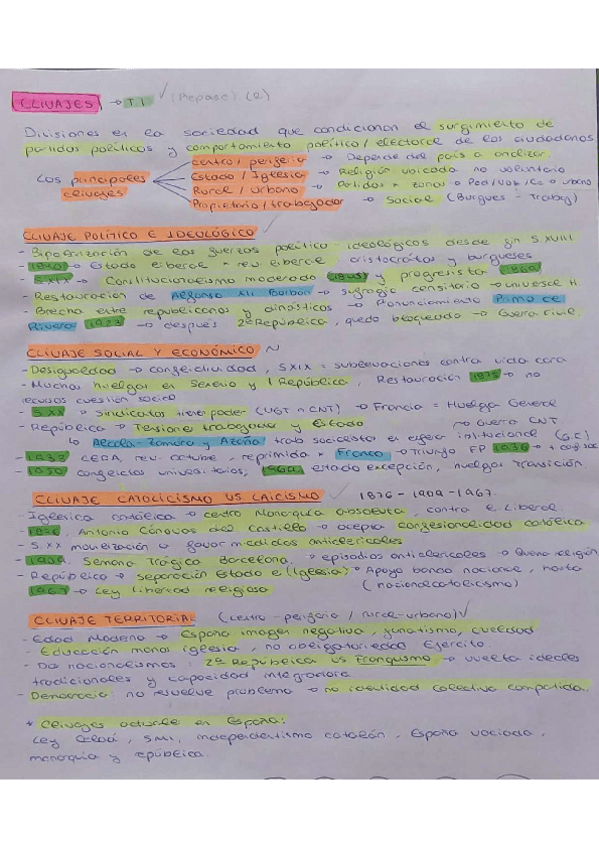 CLIVAJES → T.1 ✓ (Repaso) (2)
Divisiones en la sociedad que condicionan el surgimiento de
partidos políticos y comportamiento político / electoral de los ciudadanos
Centro / periferia → Depende del país a analizar
Los principales Estado / Iglesia → Religión vaciada no voluntario
clivajes Rural / urbano → Partidos + zona → Pod / Vox / Cs → urbano
Propietario / trabajador → Social (Burgues - Trabaj)
CLIVAJE POLÍTICO E IDEOLÓGICO ✓
- Bipolarización de las fuerzas político-ideológicas desde fin S.XVIII
→ Estado liberal = rev. liberal aristócratas y burgueses
- S.XIX → Constitucionalismo moderado (1845) y progresista 1869
- Restauración de Alfonso XII Borbón → sufragio censitario → universal H.
- Brecha entre republicanos y dinásticos → Pronunciamiento Primo de
Rivera 1923 → después 2ª República, quedo bloqueado → Guerra civil.
CLIVAJE SOCIAL Y ECONÓMICO ~
- Desigualdad → conflictividad, S.XIX = sublevaciones contra vida cara
- Muchas huelgas en Sexenio y I República, Restauración 1875 → no
recursos cuestión social
- S.XX → Sindicatos tienen poder (UGT n CNT) → Francia = Huelga General
- República → Tensiones trabajador y Estado → Guerra CNT
↳ Alcalá-Zamora y Azaña trab socialistas en esfera institucional (G.C)
- CEDA, rev. octubre, reprimida + Franco → Triunfo FP 1936 →
- conflictos universitarios, 1969 estado excepción, huelgas transición
CLIVAJE CATOLICISMO VS LAICISMO ✓ 1876 - 1909 - 1967.
- Iglesia católica → centro Monarquía absoluta, contra e. liberal.
- 1876, Antonio Cánovas del Castillo → acepta confesionalidad católica
- S.XX movilización a favor medidas anticlericales
- 1909, Semana Trágica Barcelona → episodios anticlericales → Quema religión
- República → separación Estado e (Iglesia) → Apoyo bando nacional, hasta
1967 → Ley libertad religiosa (nacionalcatolicismo)
CLIVAJE TERRITORIAL (centro-periferia / rural-urbano) ✓
- Edad Moderna → España imagen negativa, fanatismo, crueldad
- Educación manos iglesia, no obligatoriedad Ejército.
- Dos nacionalismos: 2ª República vs Franquismo → vuelta ideales
tradicionales y capacidad integradora
- Democracia: no resuelve problema → no identidad colectiva compartida.
* Clivajes actuales en España:
Ley Celaá, SMI, independentismo catalán, España vaciada,
monarquía y república.